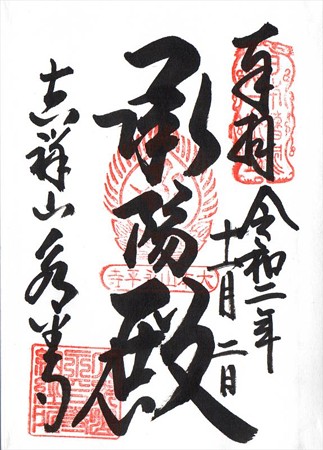 奉拝
令和二年
十一月二日
承陽殿
大本山永平寺
吉祥山永平寺